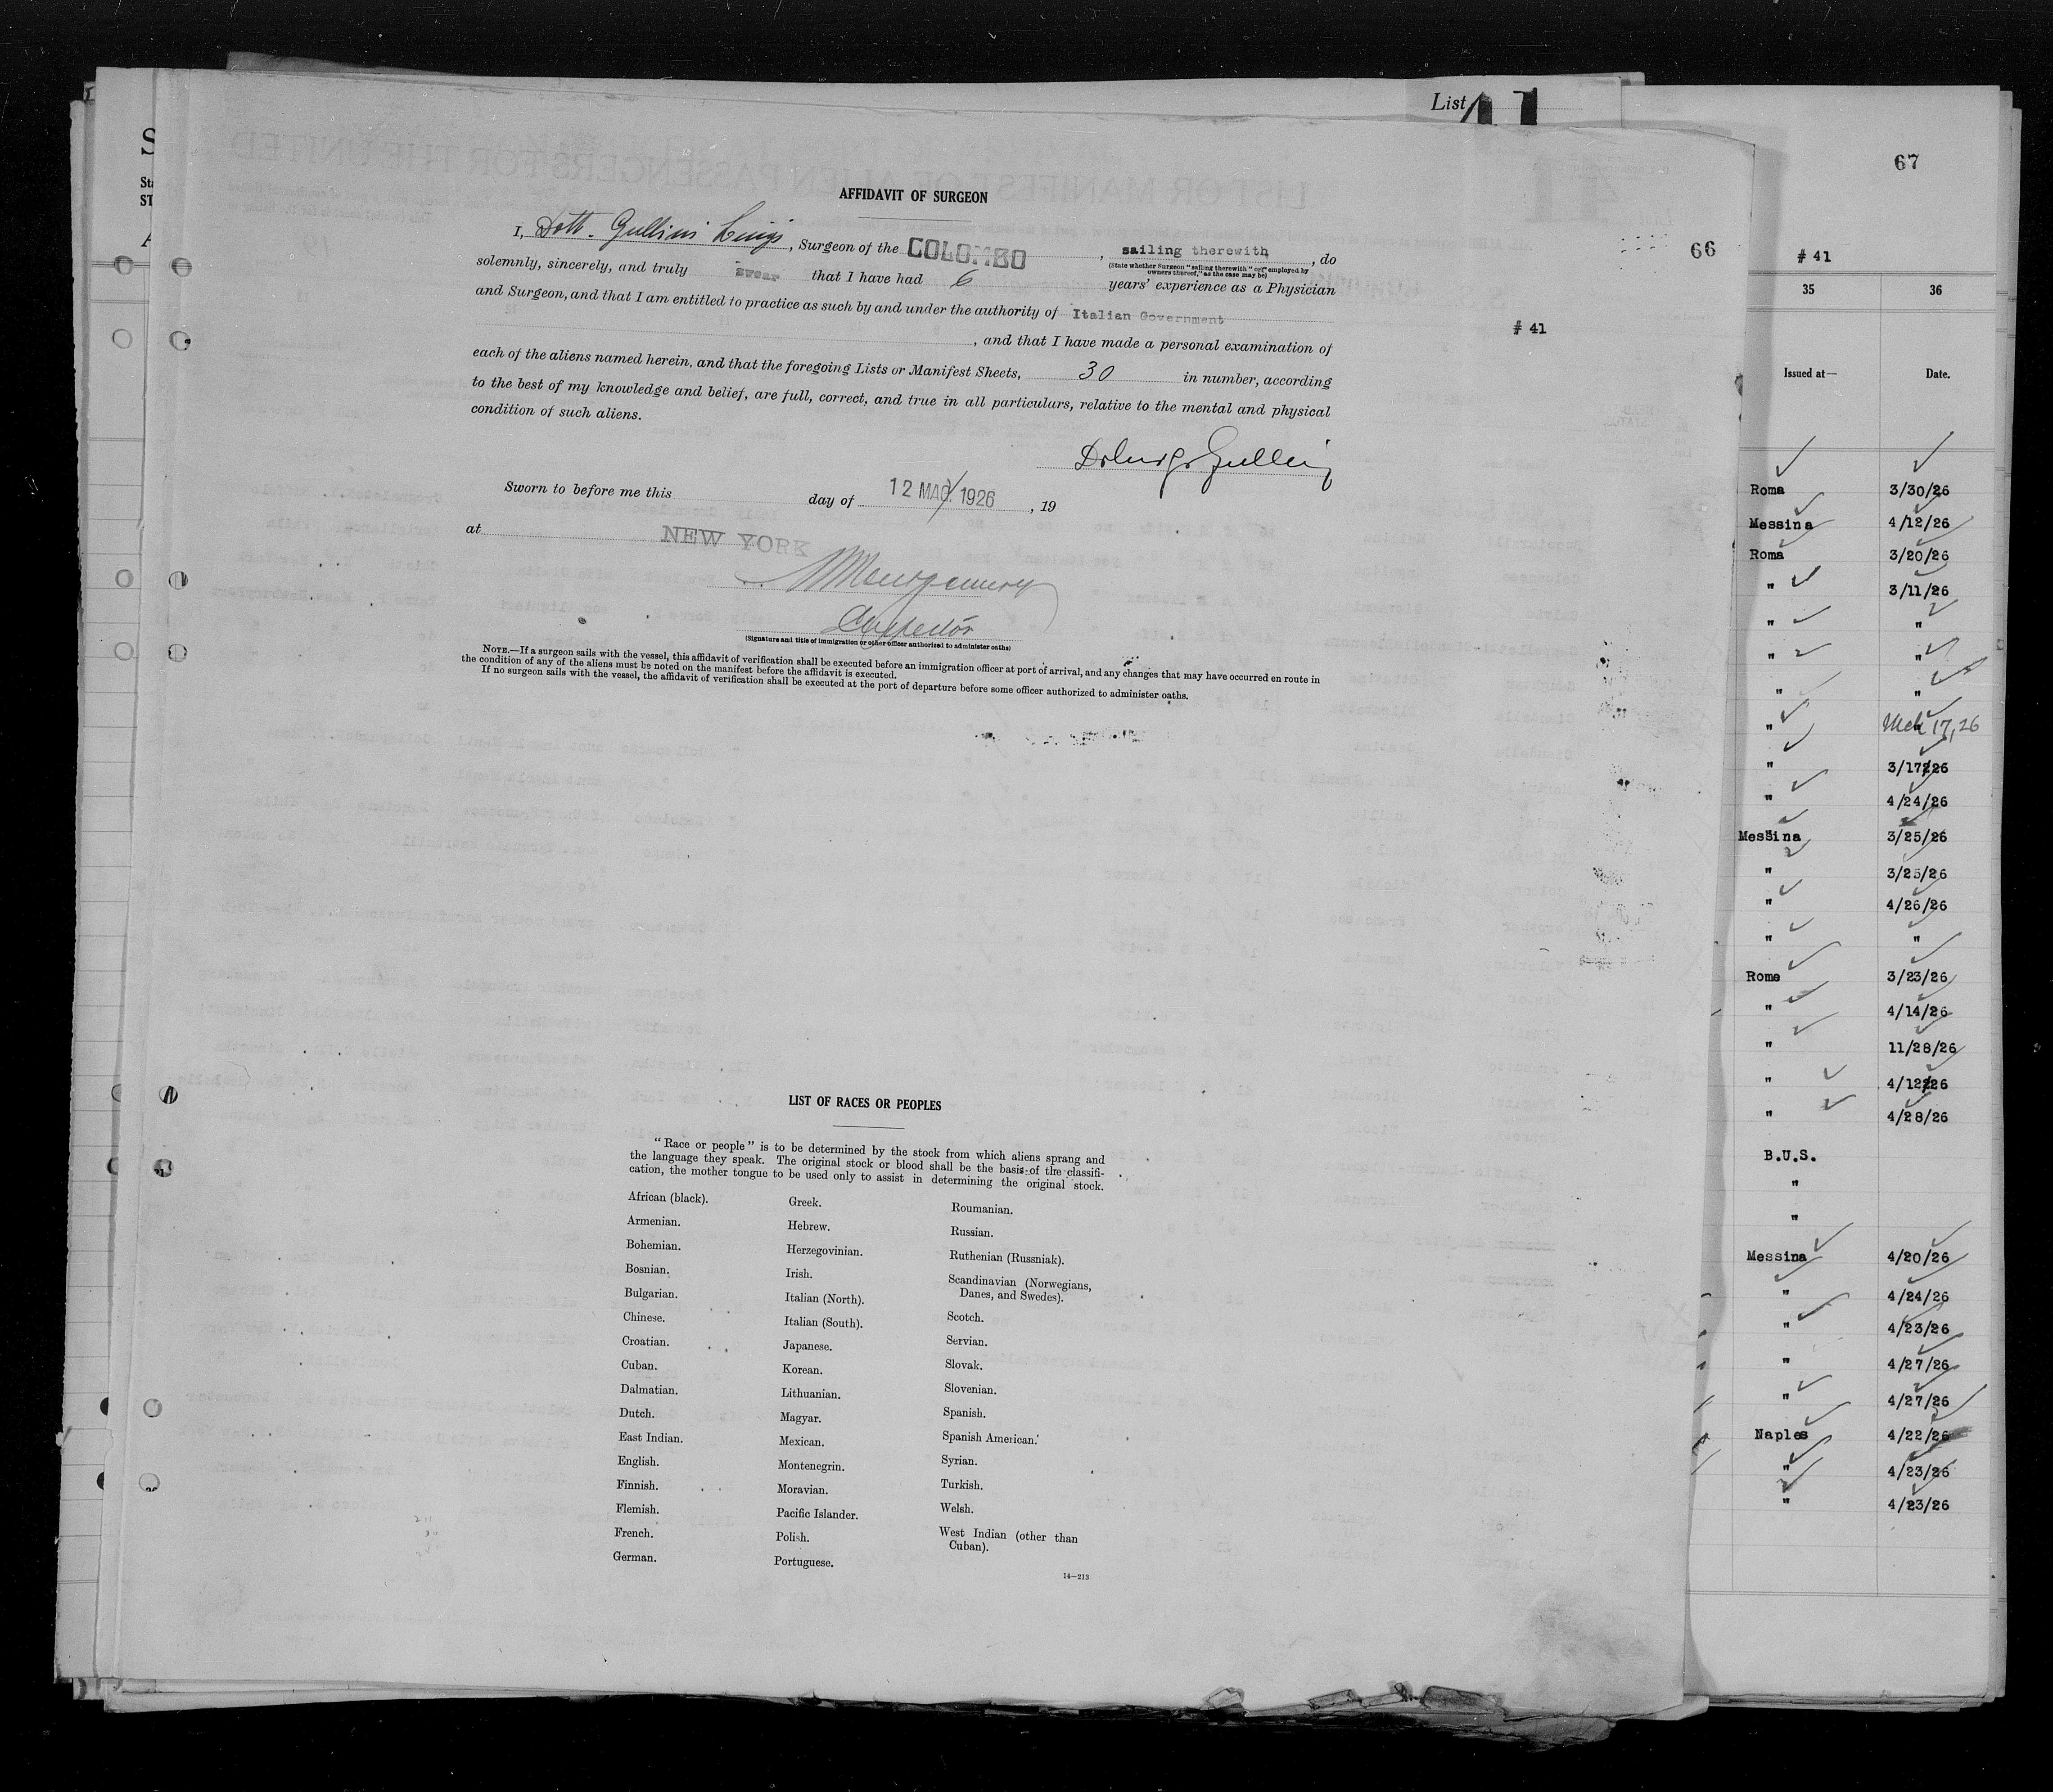 List
AFFIDAVIT OF SURGEON
I, Dott. Gullini Luigi, Surgeon of the COLOMBO, sailing therewith, do
(State whether Surgeon "sailing therewith" or "employed by owners thereof," as the case may be)
solemnly, sincerely, and truly swear that I have had 6 years' experience as a Physician
and Surgeon, and that I am entitled to practice as such by and under the authority of Italian Government
, and that I have made a personal examination of
each of the aliens named herein, and that the foregoing Lists or Manifest Sheets, 30 in number, according
to the best of my knowledge and belief, are full, correct, and true in all particulars, relative to the mental and physical
condition of such aliens.
Sworn to before me this day of 12 MAG. 1926, 19
at NEW YORK
Montgomery
Inspector
(Signature and title of immigration or other officer authorized to administer oaths)
NOTE.—If a surgeon sails with the vessel, this affidavit of verification shall be executed before an immigration officer at port of arrival, and any changes that may have occurred en route in
the condition of any of the aliens must be noted on the manifest before the affidavit is executed.
If no surgeon sails with the vessel, the affidavit of verification shall be executed at the port of departure before some officer authorized to administer oaths.
66
# 41
LIST OF RACES OR PEOPLES
"Race or people" is to be determined by the stock from which aliens sprang and
the language they speak. The original stock or blood shall be the basis of the classifi-
cation, the mother tongue to be used only to assist in determining the original stock.
African (black).
Armenian.
Bohemian.
Bosnian.
Bulgarian.
Chinese.
Croatian.
Cuban.
Dalmatian.
Dutch.
East Indian.
English.
Finnish.
Flemish.
French.
German.
Greek.
Hebrew.
Herzegovinian.
Irish.
Italian (North).
Italian (South).
Japanese.
Korean.
Lithuanian.
Magyar.
Mexican.
Montenegrin.
Moravian.
Pacific Islander.
Polish.
Portuguese.
Roumanian.
Russian.
Ruthenian (Russniak).
Scandinavian (Norwegians,
Danes, and Swedes).
Scotch.
Servian.
Slovak.
Slovenian.
Spanish.
Spanish American.
Syrian.
Turkish.
Welsh.
West Indian (other than
Cuban).
14—213
67
# 41
35 36
Issued at— Date.
Roma 3/30/26
Messina 4/12/26
Roma 3/20/26
" 3/11/26
" "
" "
" "
" Mch 17, 26
" 3/17/26
" 4/24/26
Messina 3/25/26
" 3/25/26
" 4/26/26
" "
Rome 3/23/26
" 4/14/26
" 11/28/26
" 4/12/26
" 4/28/26
B.U.S.
"
"
Messina 4/20/26
" 4/24/26
" 4/23/26
" 4/27/26
" 4/27/26
Naples 4/22/26
" 4/23/26
" 4/23/26